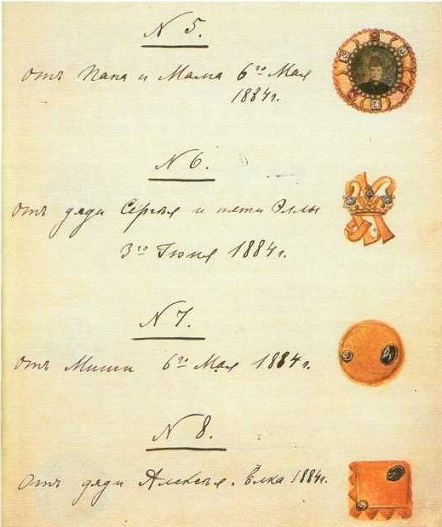 N 5.
отъ Папа и Мама 6го Мая
1884г.
N 6.
отъ дяди Сергѣя и тети Эллы
3го Іюня 1884г.
N 7.
отъ Миши 6го Мая 1884г.
N 8.
отъ дяди Алексѣя. Ёлка 1884г.